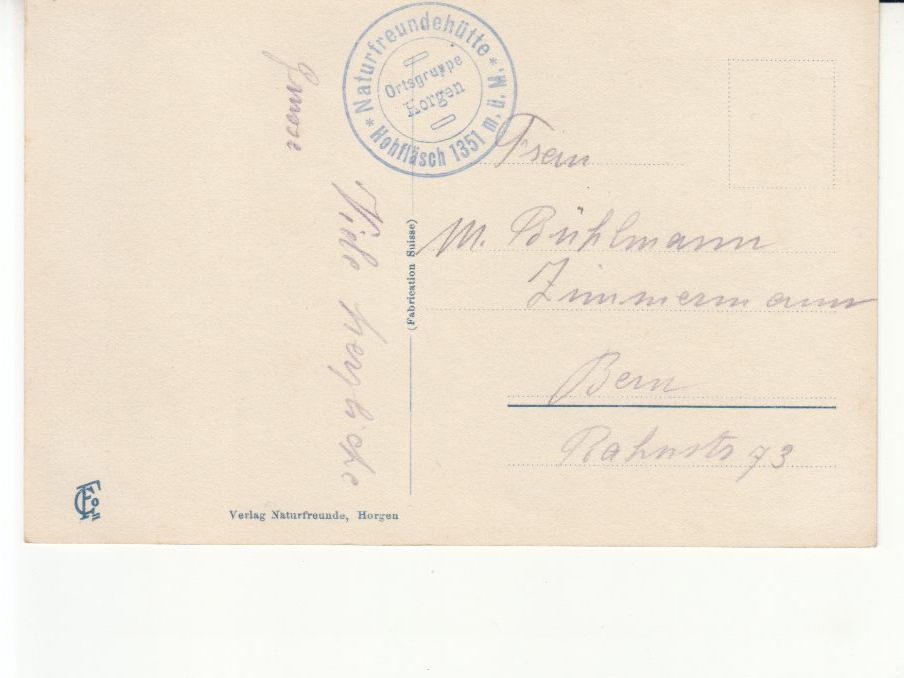 * Naturfreundehütte *
Hohfläsch 1351 m. ü. M.
Ortsgruppe
Horgen
Viele herzliche
Grüsse
(Fabrication Suisse)
Frau
M. Bühlmann
Zimmermann
Bern
73
Verlag Naturfreunde, Horgen